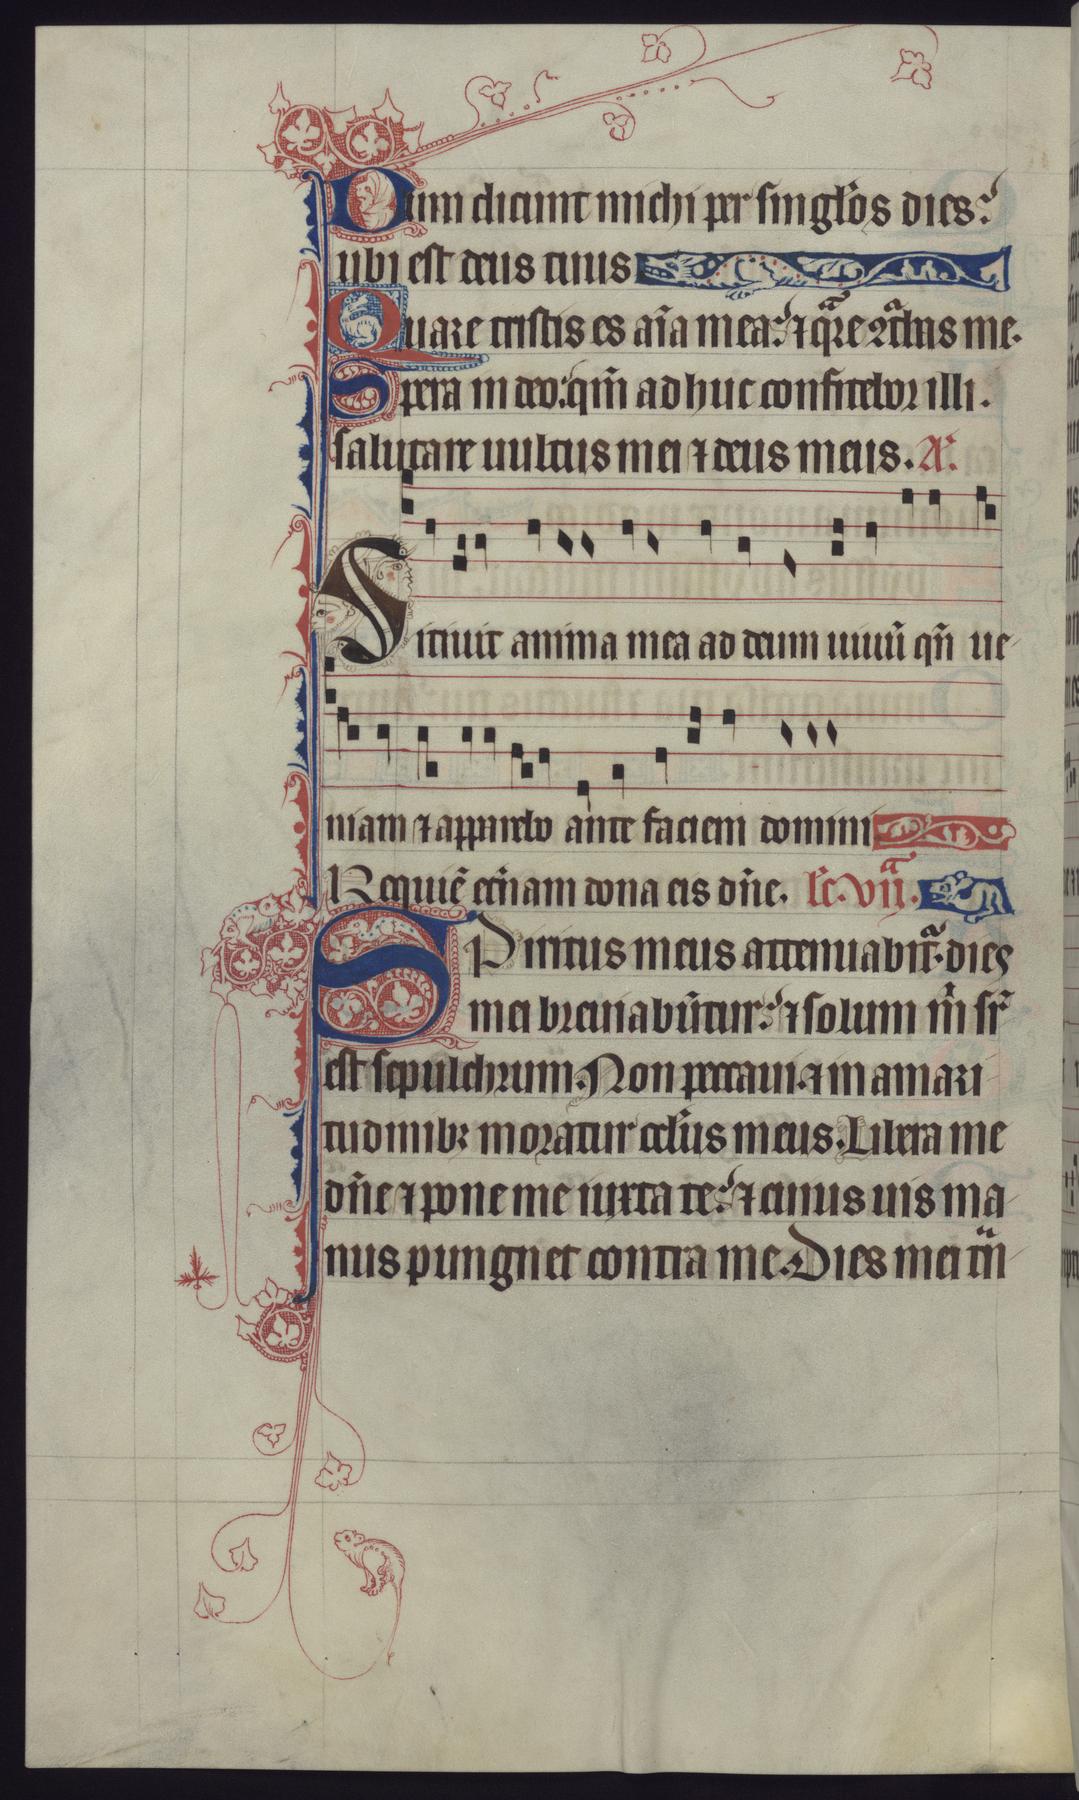 Dum dicunt michi per singlos dies:
ubi est deus tuus
Quare tristis es aīa mea: ⁊ qͣre ↄtͣbas me.
Spera in deo: qm̄ adhuc confitebor illi.
salutare uultus mei ⁊ deus meus. A̕.
Sitiuit anima mea ad deum uiuū qn̄ ue-
niam ⁊ apparebo ante faciem domini
Requiē et̄nam dona eis dn̄e. le̅. vijͣ.
Spiritus meus attenuabitͣ. dies
mei breuiabūtur: ⁊ solum m̍ suꝑ
est sepulchrum. Non peccaui. ⁊ in amari-
tudinibꝫ moratur ocl̄us meus. Libera me
dn̄e ⁊ pone me iuxta te: ⁊ cuiuus uis ma-
nus pungnet contra me. Dies mei tn̄-